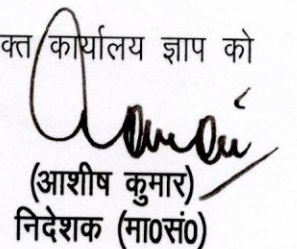 कार्यालय ज्ञाप को
(आशीष कुमार)
निदेशक (मा0सं0)